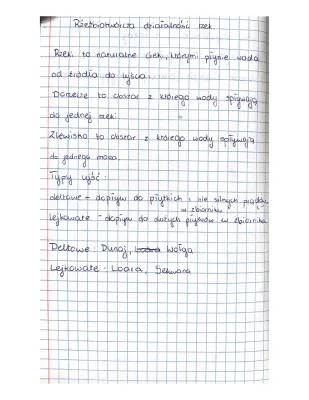 Rzeźbotwórcza działalność rzek.
Rzeki to naturalne cieki, którymi płynie woda
od źródła do ujścia.
Dorzecze to obszar z którego wody spływają
do jednej rzeki
Zlewisko to obszar z którego wody spływają
do jednego morza
Typy ujść:
deltowe - dopływ do płytkich i nie silnych prądów
w zbiorniku
lejkowate - dopływ do dużych pływów w zbiorniku
Deltowe: Dunaj, Wołga
Lejkowate: Loara, Sekwana